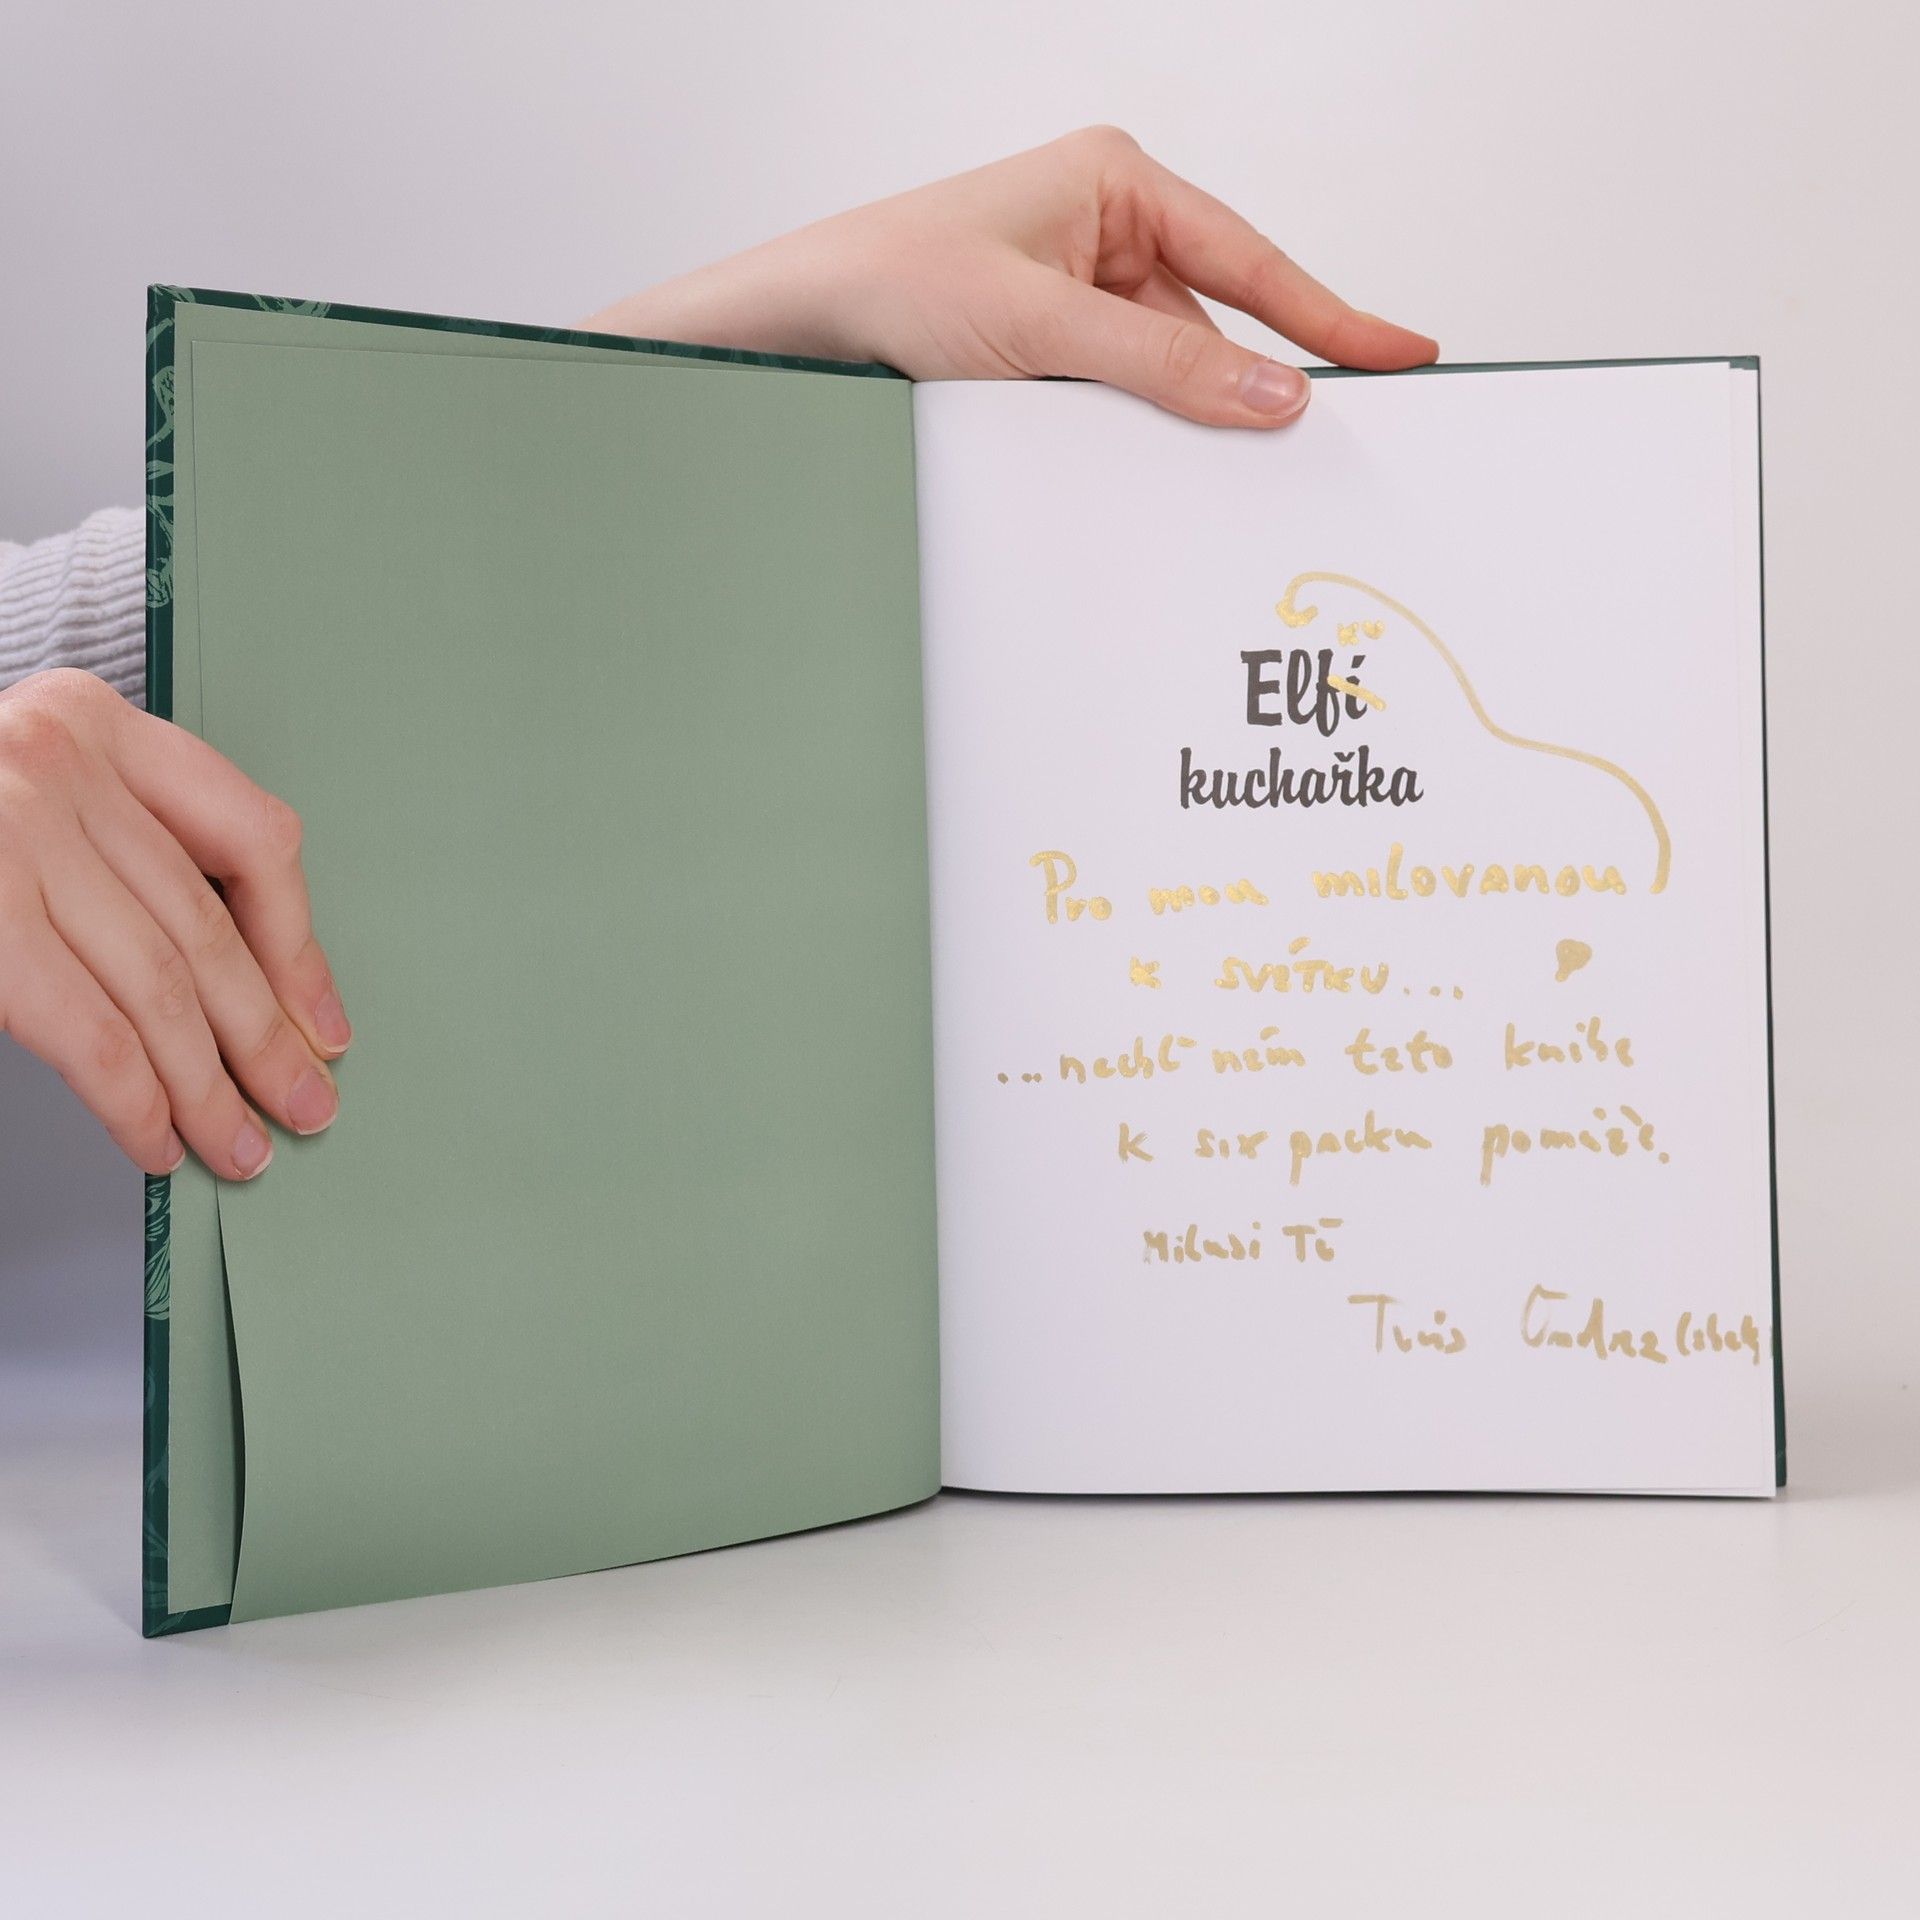 ku
Elfí
kuchařka
Pro mou milovanou
k svátku...
...nechť nám tato kniha
k six packu pomůže.
Miluji Tě
Ondra